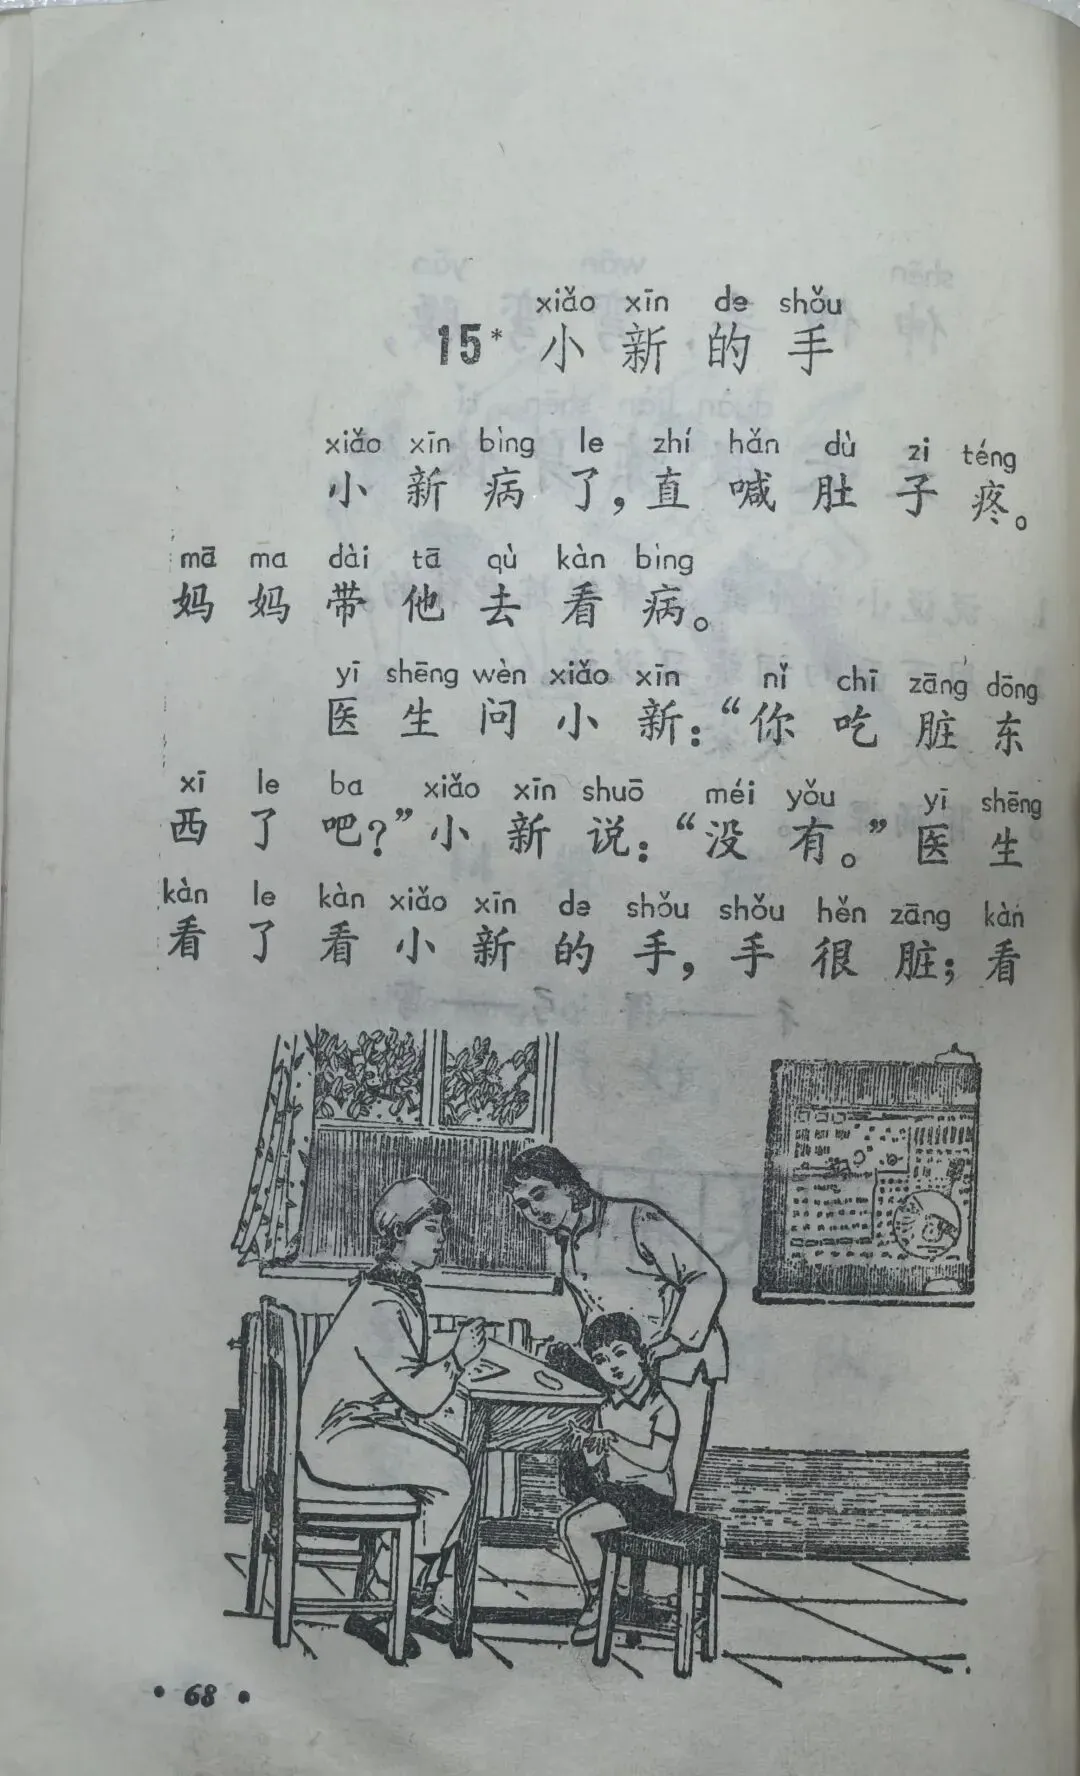 xiǎo xīn de shǒu
15* 小新的手
xiǎo xīn bìng le zhí hǎn dù zi téng
小新病了，直喊肚子疼。
mā ma dài tā qù kàn bìng
妈妈带他去看病。
yī shēng wèn xiǎo xīn nǐ chī zāng dōng
医生问小新：“你吃脏东
xī le ba xiǎo xīn shuō méi yǒu yī shēng
西了吧？”小新说：“没有。”医生
kàn le kàn xiǎo xīn de shǒu shǒu hěn zāng kàn
看了看小新的手，手很脏；看
• 68 •